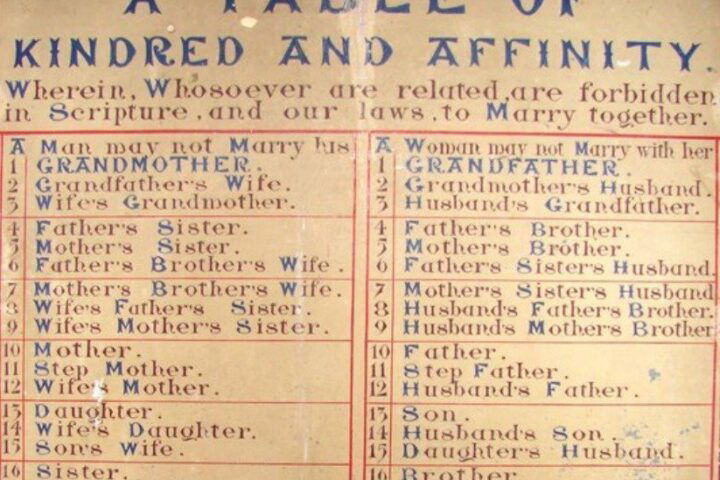 A TABLE OF
KINDRED AND AFFINITY.
Wherein, Whosoever are related, are forbidden
in Scripture, and our laws, to Marry together.
A Man may not Marry his
1 GRANDMOTHER.
2 Grandfather's Wife.
3 Wife's Grandmother.
4 Father's Sister.
5 Mother's Sister.
6 Father's Brother's Wife.
7 Mother's Brother's Wife.
8 Wife's Father's Sister.
9 Wife's Mother's Sister.
10 Mother.
11 Step Mother.
12 Wife's Mother.
13 Daughter.
14 Wife's Daughter.
15 Son's Wife.
16 Sister.
A Woman may not Marry with her
1 GRANDFATHER.
2 Grandmother's Husband.
3 Husband's Grandfather.
4 Father's Brother.
5 Mother's Brother.
6 Father's Sister's Husband.
7 Mother's Sister's Husband
8 Husband's Father's Brother.
9 Husband's Mother's Brother
10 Father.
11 Step Father.
12 Husband's Father.
13 Son.
14 Husband's Son.
15 Daughter's Husband.
16 Brother.